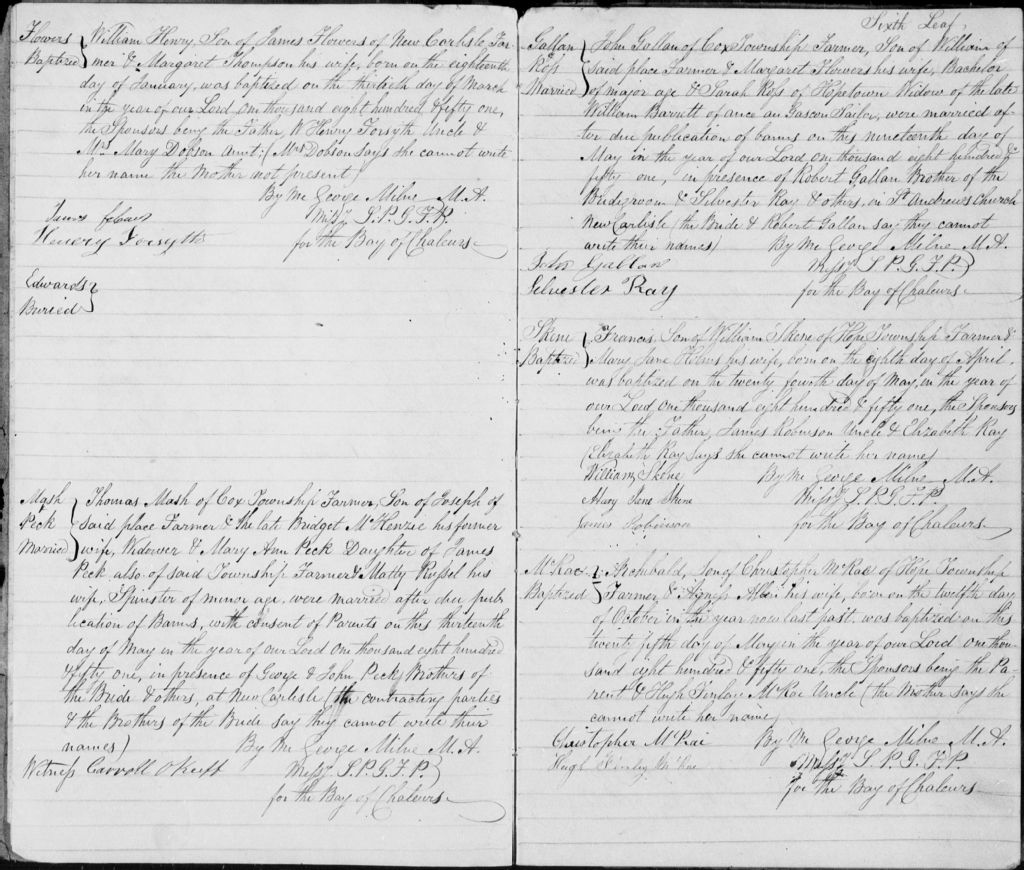 Flowers Baptized } William Henry, Son of James Flowers of New Carlisle, Far-
mer & Margaret Thompson his wife, born on the eighteenth
day of January, was baptized on the thirtieth day of March
in the year of our Lord one thousand eight hundred & fifty one,
the Sponsors being the Father, W. Henry Forsyth Uncle &
Mrs. Mary Dobson Aunt: (Mrs Dobson says she cannot write
her name the Mother not present)
By Me George Milne M.A.
Missy S.P.G.F.P.
for the Bay of Chaleurs
James
Henery Forsyth
Edwards
Buried }
Mash & Peck Married } Thomas Mash of Cox Township Farmer, Son of Joseph of
said place Farmer & the late Bridget McKenzie his former
wife, Widower & Mary Ann Peck Daughter of James
Peck also of said Township Farmer & Matty Russel his
wife, Spinster of minor age, were married after due pub-
lication of Banns, with consent of Parents on this thirteenth
day of May in the year of our Lord one thousand eight hundred
& fifty one, in presence of George & John Peck, Brothers of
the Bride & others, at New Carlisle (the contracting parties
& the Brothers of the Bride say they cannot write their
names)
By Me George Milne M.A.
Witness Carroll O'Keeff
Missy S.P.G.F.P.
for the Bay of Chaleurs
Sixth Leaf
Gallan & Ross Married } John Gallan of Cox Township Farmer, Son of William of
said place Farmer & Margaret Flowers his wife, Bachelor
of major age & Sarah Ross of Hopetown Widow of the late
William Barrett of once an Gascon Sailor, were married af-
ter due publication of banns on this nineteenth day of
May in the year of our Lord one thousand eight hundred &
fifty one, in presence of Robert Gallan Brother of the
Bridegroom & Silvester Ray & others, in St Andrews Church
New Carlisle (the Bride & Robert Gallan say they cannot
write their names)
By Me George Milne M.A.
John Gallan
Missy. S.P.G.F.P.
Silvester Ray
for the Bay of Chaleurs
Skene Baptized } Francis, Son of William Skene of Hope Township Farmer &
Mary Jane his wife, born on the eighth day of April
was baptized on the twenty fourth day of May, in the year of
our Lord one thousand eight hundred & fifty one, the Sponsors
being the Father, James Robinson Uncle & Elizabeth Ray
(Elizabeth Ray says she cannot write her name)
William Skene
By Me George Milne M.A.
Mary Jane Skene
Missy. S.P.G.F.P.
James Robinson
for the Bay of Chaleurs
McRae Baptized } Archibald, Son of Christopher McRae of Hope Township
Farmer, & Agness his wife, born on the twelfth day
of October in the year now last past, was baptized on this
twenty fifth day of May in the year of our Lord one thou-
sand eight hundred & fifty one, the Sponsors being the Pa-
rent & Hugh Finlay McRae Uncle (the Mother says she
cannot write her name)
Christopher McRai
By Me George Milne M.A.
Hugh Finlay McRae
Missy. S.P.G.F.P.
for the Bay of Chaleurs